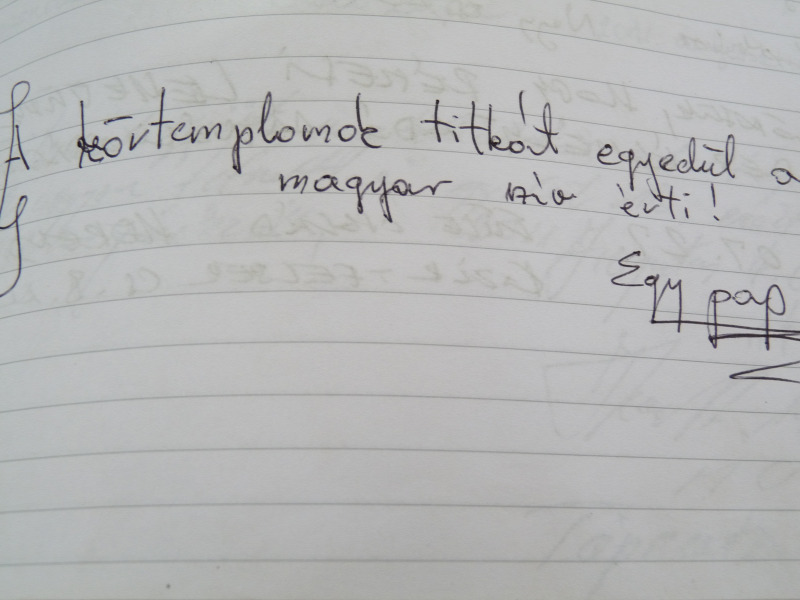 A körtemplomok titkát egyedül a
magyar szív érti!
Egy pap